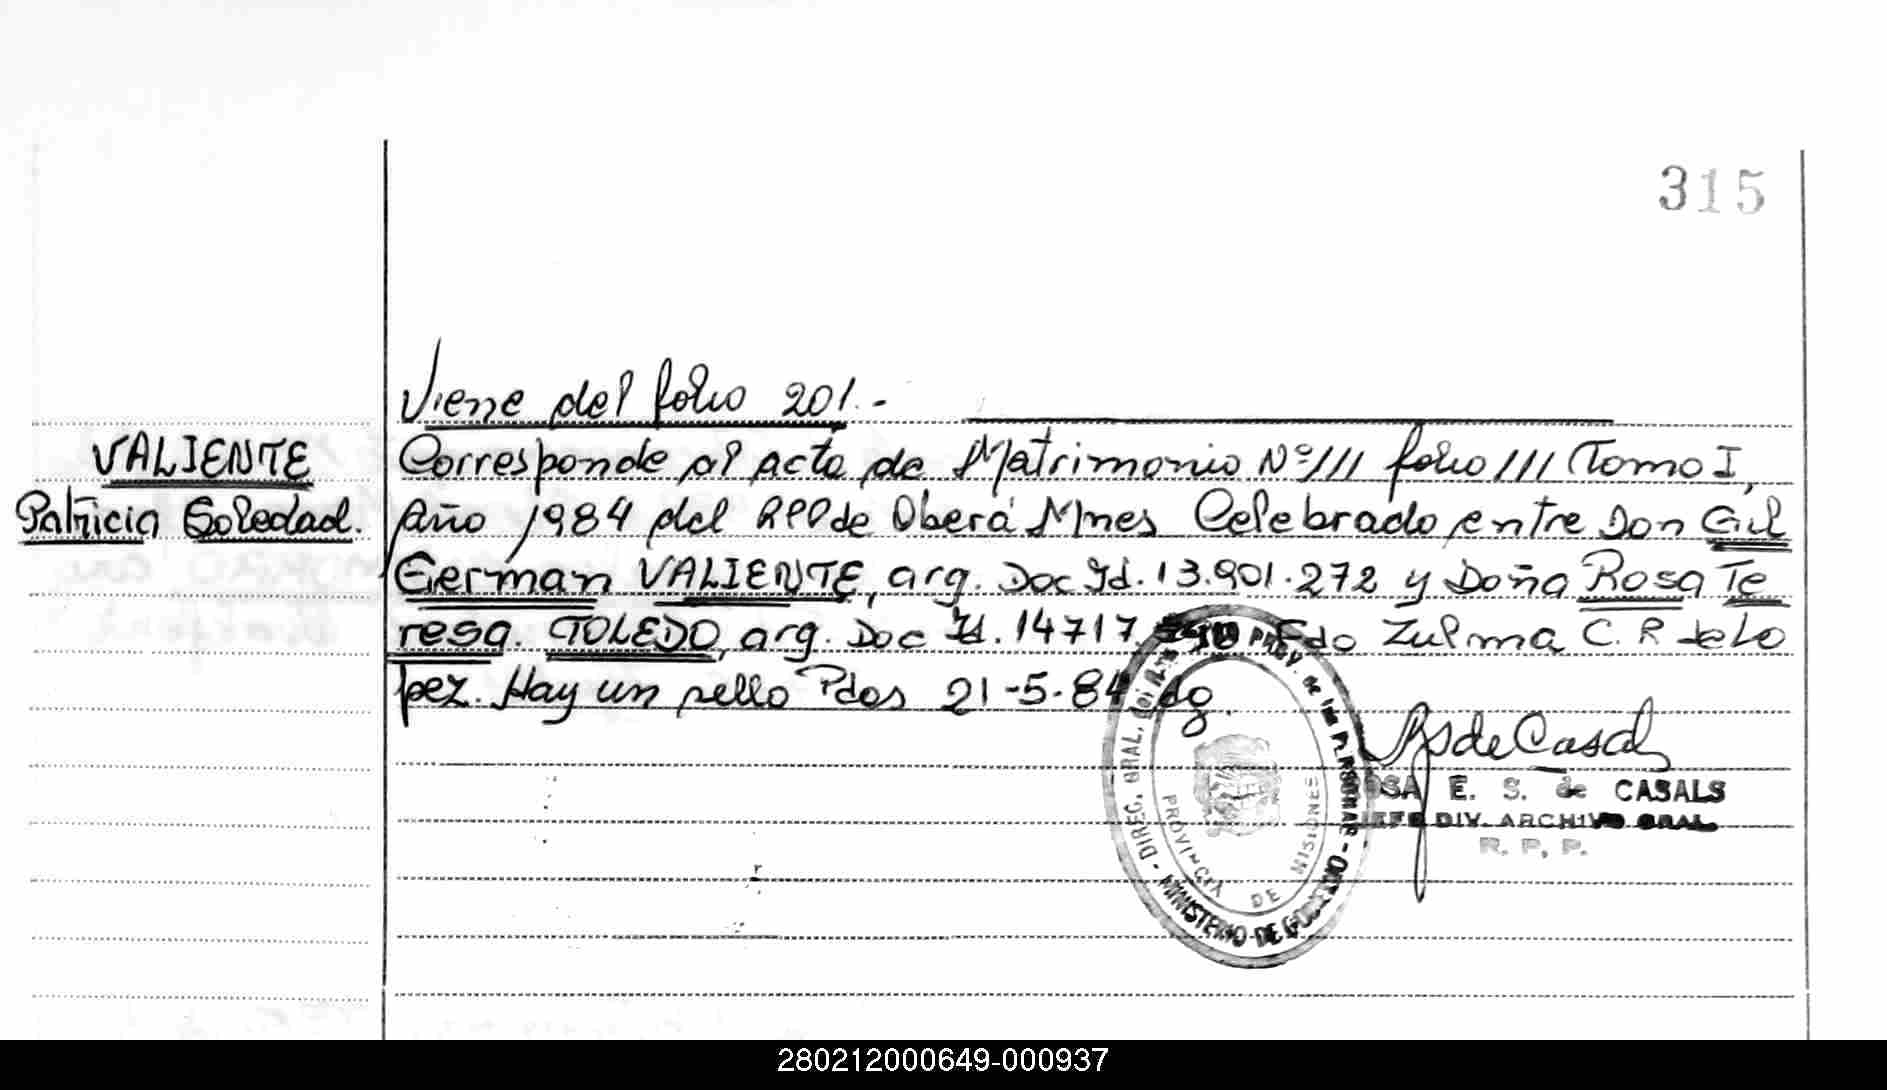 315
Viene del folio 201.-
VALIENTE
Patricia Soledad.
Corresponde al acta de Matrimonio Nº 111 folio 111 Tomo I,
Año 1984 del RPP de Oberá Mnes Celebrado entre Don Gil
German VALIENTE, arg. Doc Id. 13.901.272 y Doña Rosa Te
resa. TOLEDO, arg. Doc Id. 14717. Fdo Zulma C. R de Lo
pez. Hay un sello Pdas 21-5-84 dg.
RSdeCasals
OSA E. S. de CASALS
JEFE DIV. ARCHIVO GRAL.
R. P. P.
DIREC. GRAL. PROV. de las PERSONAS
MINISTERIO DE GOBIERNO
PROVINCIA DE MISIONES
280212000649-000937